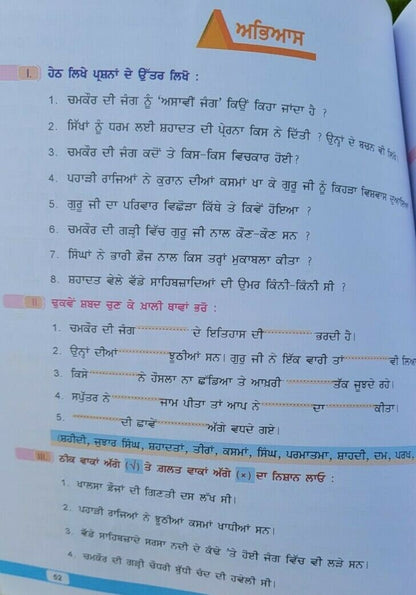 ਅਭਿਆਸ
I. ਹੇਠ ਲਿਖੇ ਪ੍ਰਸ਼ਨਾਂ ਦੇ ਉੱਤਰ ਲਿਖੋ :
1. ਚਮਕੌਰ ਦੀ ਜੰਗ ਨੂੰ 'ਅਸਾਵੀਂ ਜੰਗ' ਕਿਉਂ ਕਿਹਾ ਜਾਂਦਾ ਹੈ ?
2. ਸਿੱਖਾਂ ਨੂੰ ਧਰਮ ਲਈ ਸ਼ਹਾਦਤ ਦੀ ਪ੍ਰੇਰਨਾ ਕਿਸ ਨੇ ਦਿੱਤੀ ? ਉਨ੍ਹਾਂ ਦੇ ਬਚਨ ਵੀ ਲਿਖੋ।
3. ਚਮਕੌਰ ਦੀ ਜੰਗ ਕਦੋਂ ਤੇ ਕਿਸ-ਕਿਸ ਵਿਚਕਾਰ ਹੋਈ?
4. ਪਹਾੜੀ ਰਾਜਿਆਂ ਨੇ ਕੁਰਾਨ ਦੀਆਂ ਕਸਮਾਂ ਖਾ ਕੇ ਗੁਰੂ ਜੀ ਨੂੰ ਕਿਹੜਾ ਵਿਸ਼ਵਾਸ
5. ਗੁਰੂ ਜੀ ਦਾ ਪਰਿਵਾਰ ਵਿਛੋੜਾ ਕਿੱਥੇ ਤੇ ਕਿਵੇਂ ਹੋਇਆ ?
6. ਚਮਕੌਰ ਦੀ ਗੜ੍ਹੀ ਵਿੱਚ ਗੁਰੂ ਜੀ ਨਾਲ ਕੌਣ-ਕੌਣ ਸਨ ?
7. ਸਿੰਘਾਂ ਨੇ ਭਾਰੀ ਫ਼ੌਜ ਨਾਲ ਕਿਸ ਤਰ੍ਹਾਂ ਮੁਕਾਬਲਾ ਕੀਤਾ ?
8. ਸ਼ਹਾਦਤ ਵੇਲੇ ਵੱਡੇ ਸਾਹਿਬਜ਼ਾਦਿਆਂ ਦੀ ਉਮਰ ਕਿੰਨੀ-ਕਿੰਨੀ ਸੀ ?
II. ਢੁਕਵੇਂ ਸ਼ਬਦ ਚੁਣ ਕੇ ਖ਼ਾਲੀ ਥਾਵਾਂ ਭਰੋ :
1. ਚਮਕੌਰ ਦੀ ਜੰਗ ............ ਦੇ ਇਤਿਹਾਸ ਦੀ ............ ਭਰਦੀ ਹੈ।
2. ਉਨ੍ਹਾਂ ਦੀਆਂ ............ ਝੂਠੀਆਂ ਸਨ। ਗੁਰੂ ਜੀ ਨੇ ਇੱਕ ਵਾਰੀ ਤਾਂ ............ ਵੀ
3. ਕਿਸੇ ............ ਨੇ ਹੌਸਲਾ ਨਾ ਛੱਡਿਆ ਤੇ ਆਖ਼ਰੀ ............ ਤੱਕ ਜੂਝਦੇ ਰਹੇ।
4. ਸਪੁੱਤਰ ਨੇ ............ ਜਾਮ ਪੀਤਾ ਤਾਂ ਆਪ ਨੇ ............ ਦਾ ............ ਕੀਤਾ।
5. ............ ਦੀ ਛਾਵੇਂ ............ ਅੱਗੇ ਵਧਦੇ ਗਏ।
(ਸ਼ਹੀਦੀ, ਜੁਝਾਰ ਸਿੰਘ, ਸ਼ਹਾਦਤਾਂ, ਤੀਰਾਂ, ਕਸਮਾਂ, ਸਿੰਘ, ਪਰਮਾਤਮਾ, ਸ਼ਾਹਦੀ, ਦਮ, ਪਰਖ,
III. ਠੀਕ ਵਾਕਾਂ ਅੱਗੇ (√) ਤੇ ਗ਼ਲਤ ਵਾਕਾਂ ਅੱਗੇ (×) ਦਾ ਨਿਸ਼ਾਨ ਲਾਓ :
1. ਖ਼ਾਲਸਾ ਫ਼ੌਜਾਂ ਦੀ ਗਿਣਤੀ ਦਸ ਲੱਖ ਸੀ।
2. ਪਹਾੜੀ ਰਾਜਿਆਂ ਨੇ ਝੂਠੀਆਂ ਕਸਮਾਂ ਖਾਧੀਆਂ ਸਨ।
3. ਵੱਡੇ ਸਾਹਿਬਜ਼ਾਦੇ ਸਰਸਾ ਨਦੀ ਦੇ ਕੰਢੇ 'ਤੇ ਹੋਈ ਜੰਗ ਵਿੱਚ ਵੀ ਲੜੇ ਸਨ।
4. ਚਮਕੌਰ ਦੀ ਗੜ੍ਹੀ ਚੌਧਰੀ ਬੁੱਧੀ ਚੰਦ ਦੀ ਹਵੇਲੀ ਸੀ।
52